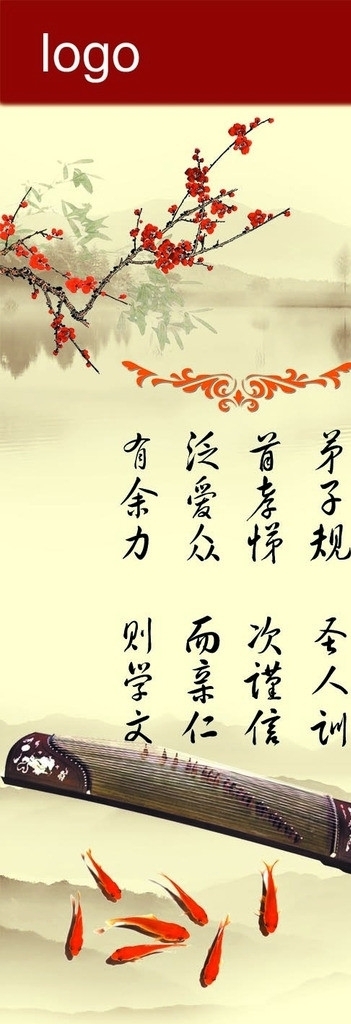 logo
弟子规 圣人训
首孝悌 次谨信
泛爱众 而亲仁
有余力 则学文